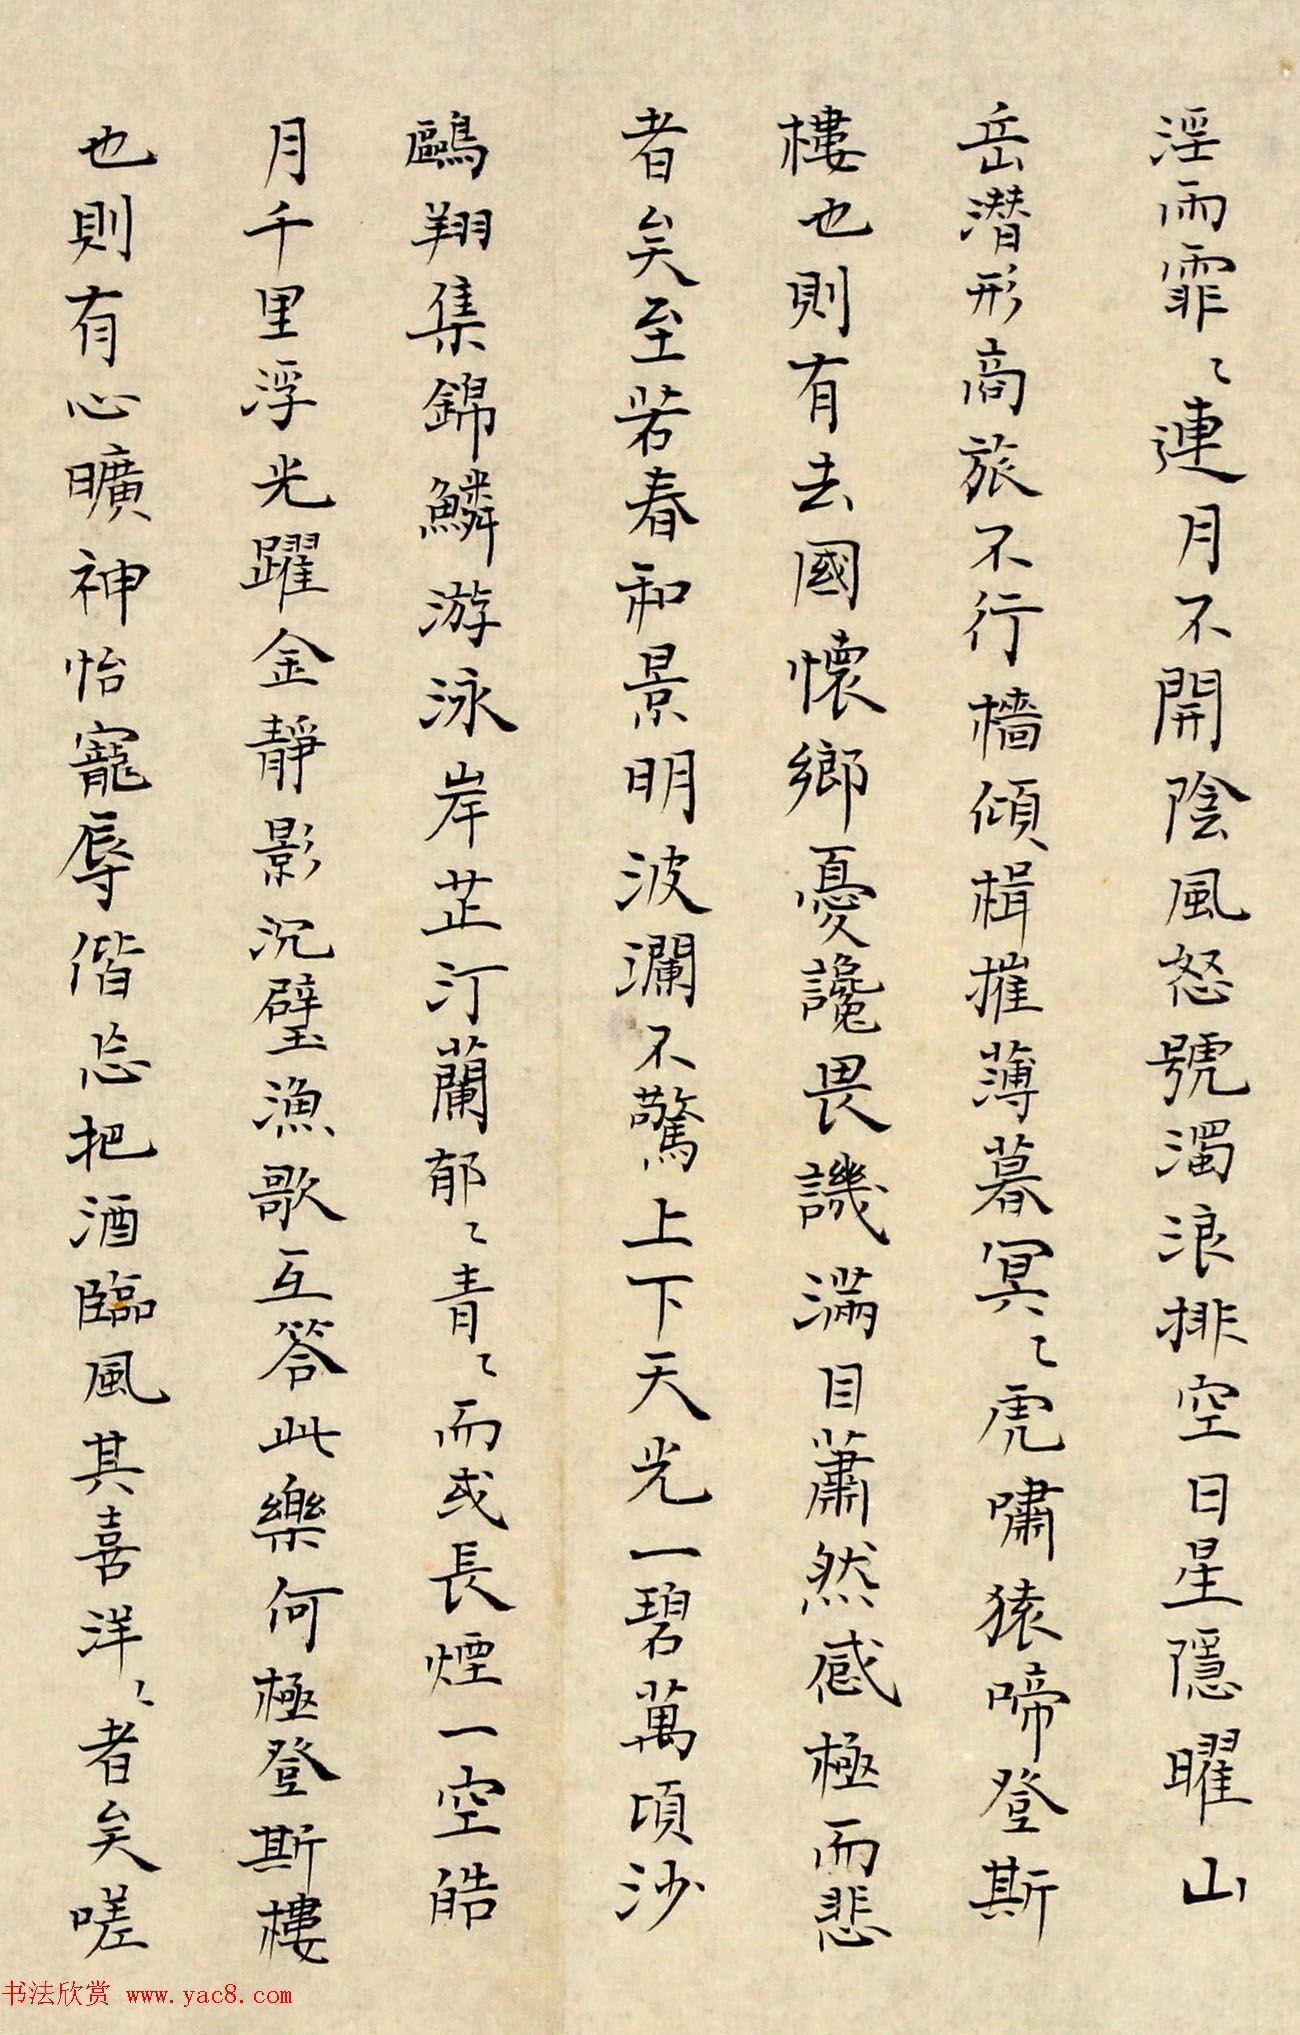 淫雨霏〻連月不開陰風怒號濁浪排空日星隱曜山
岳潛形商旅不行檣傾楫摧薄暮冥〻虎嘯猿啼登斯
樓也則有去國懷鄉憂讒畏譏滿目蕭然感極而悲
者矣至若春和景明波瀾不驚上下天光一碧萬頃沙
鷗翔集錦鱗游泳岸芷汀蘭郁〻青〻而或長煙一空皓
月千里浮光躍金靜影沉璧漁歌互答此樂何極登斯樓
也則有心曠神怡寵辱偕忘把酒臨風其喜洋〻者矣嗟
书法欣赏 www.yac8.com